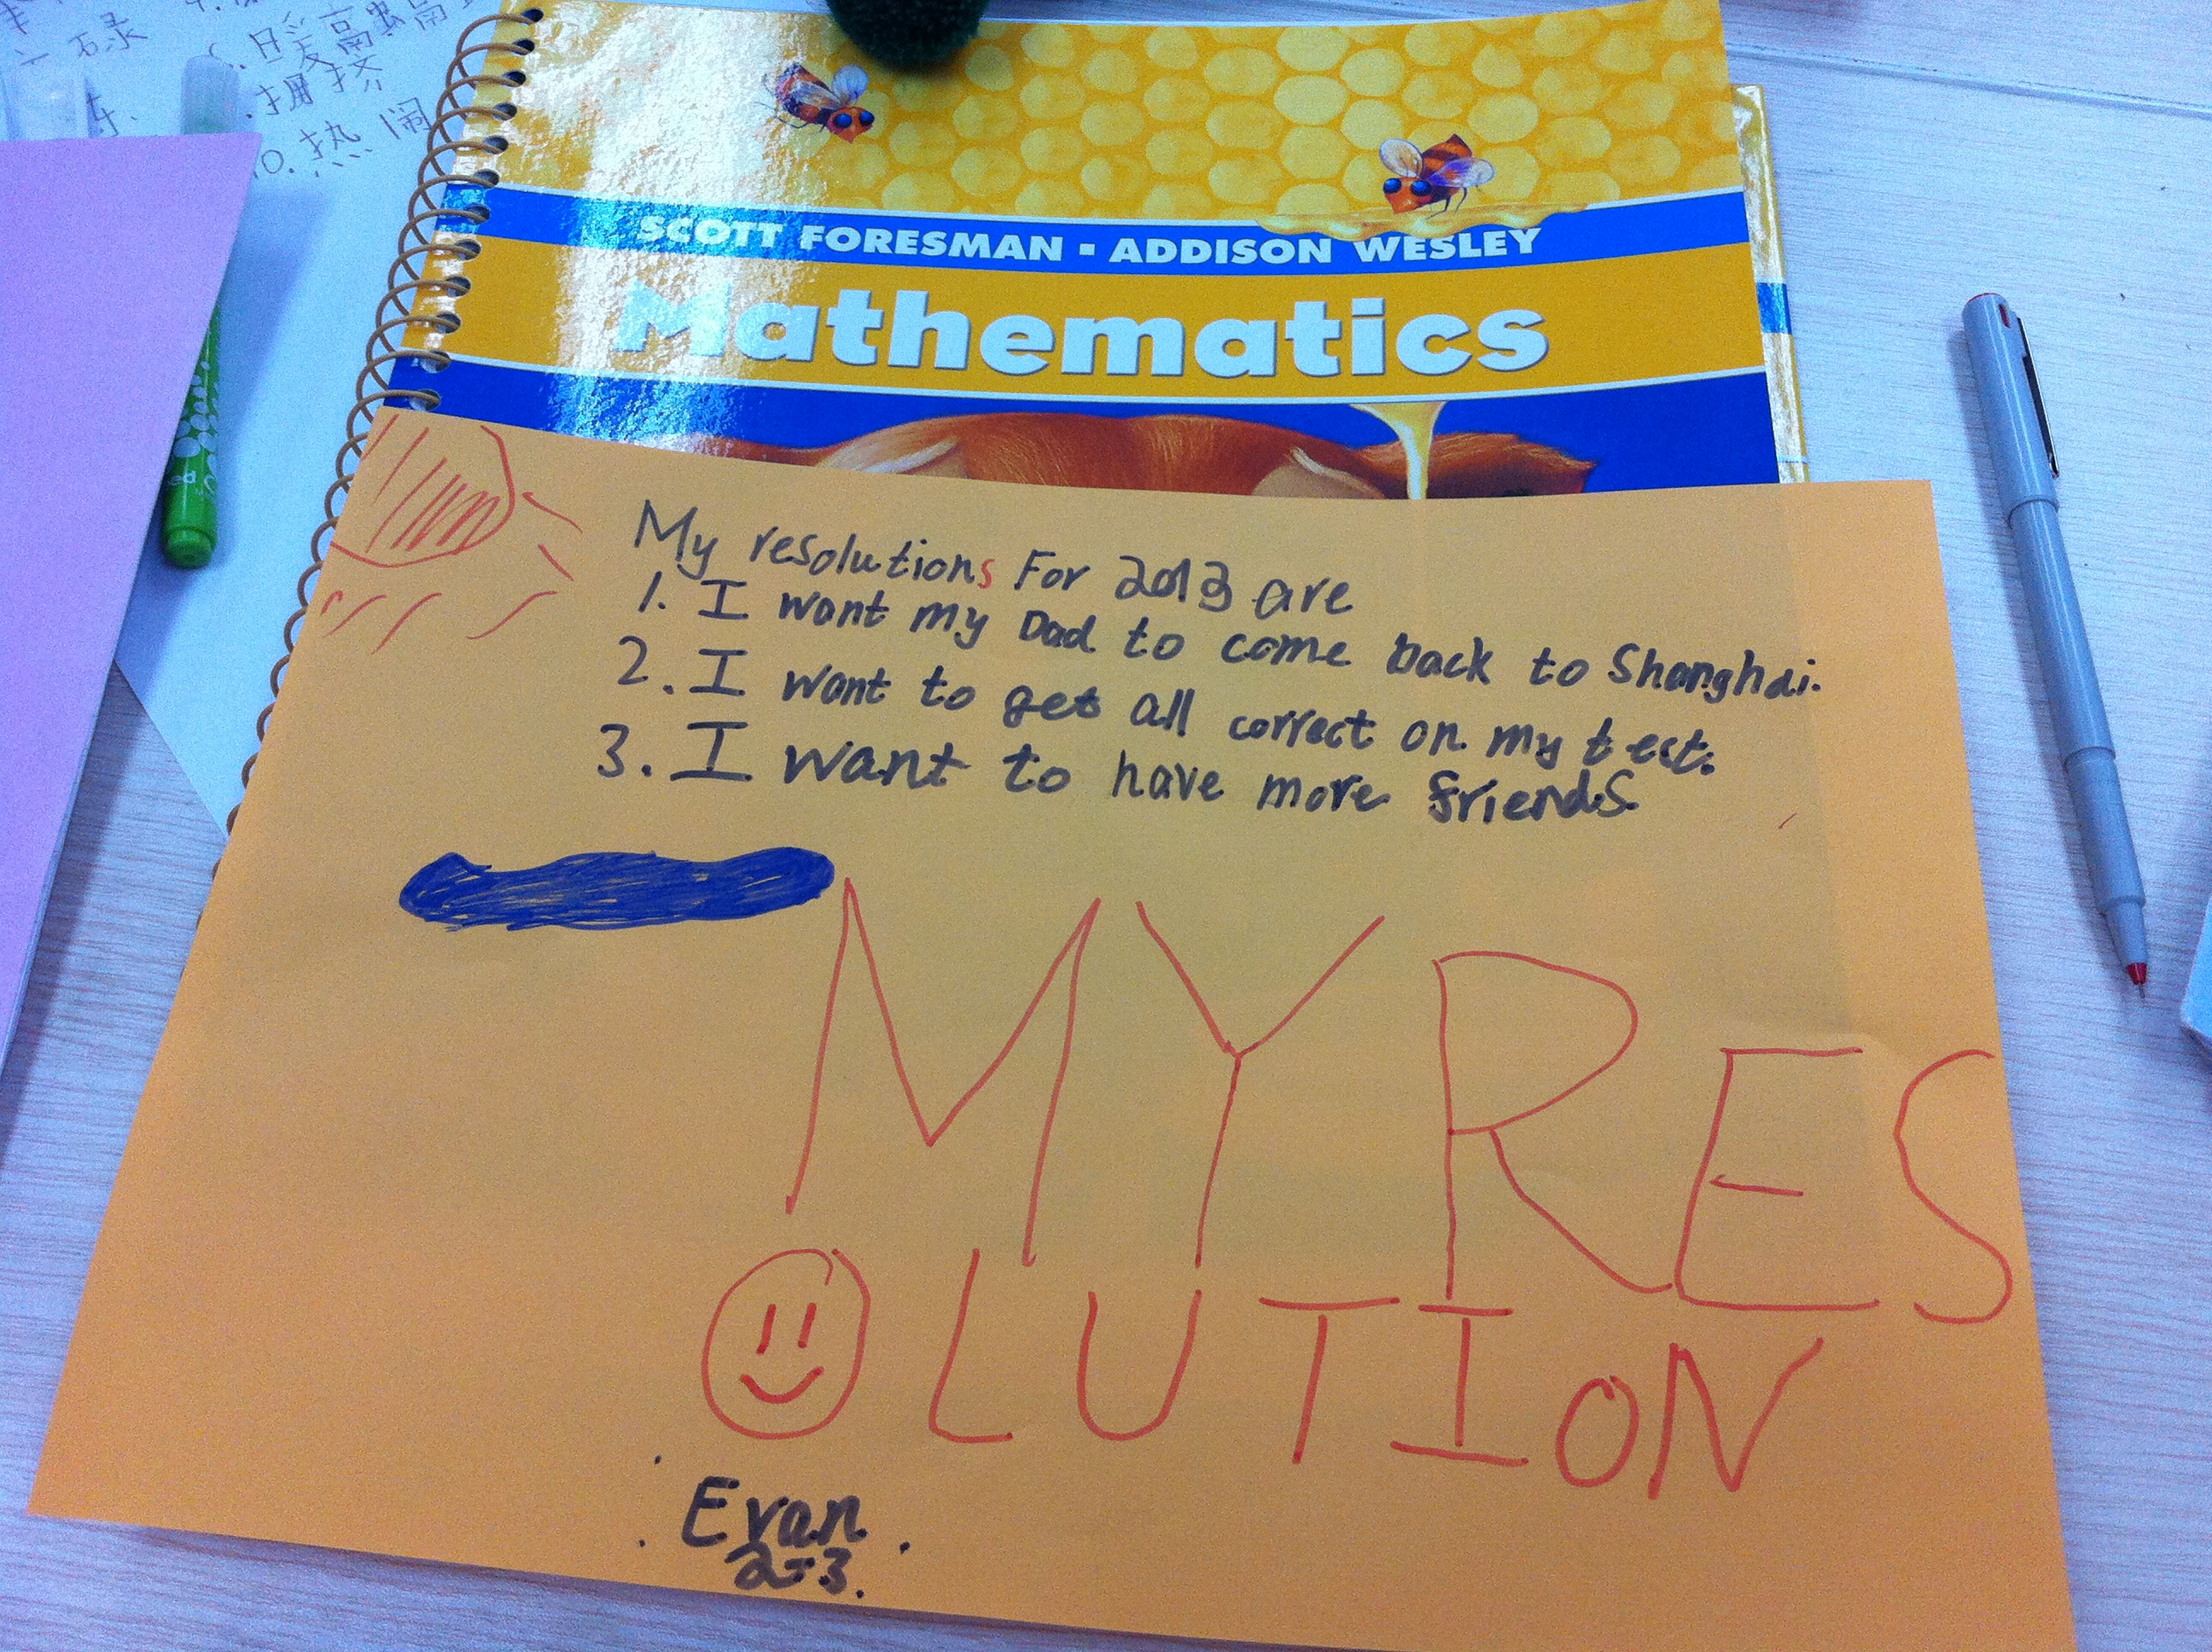 暖
拥挤
10. 热闹
SCOTT FORESMAN · ADDISON WESLEY
Mathematics
My resolutions For 2013 are
1. I want my Dad to come back to Shanghai.
2. I want to get all correct on my test.
3. I want to have more friends.
MY RES
OLUTION
Evan
2-3.